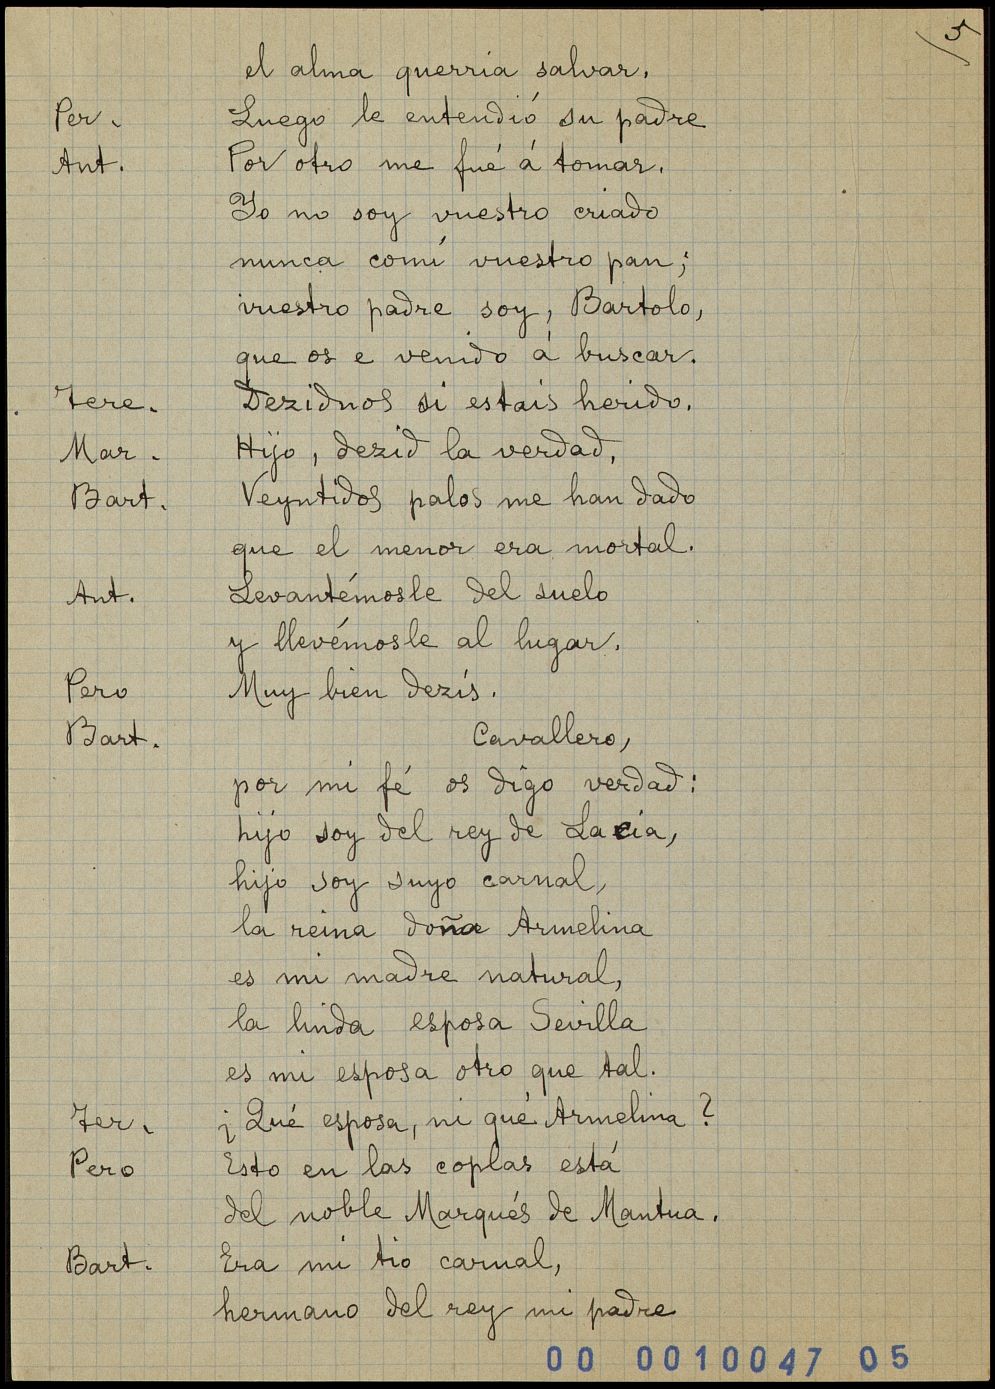 5
el alma querria salvar.
Per. Luego le entendió su padre
Ant. Por otro me fué á tomar.
Yo no soy vuestro criado
nunca comí vuestro pan;
vuestro padre soy, Bartolo,
que os e venido á buscar.
Tere. Dezidnos si estais herido.
Mar. Hijo, dezid la verdad,
Bart. Veyntidos palos me han dado
que el menor era mortal.
Ant. Levantémosle del suelo
y llevémosle al lugar.
Pero Muy bien dezís.
Bart. Cavallero,
por mi fé os digo verdad:
hijo soy del rey de Lacia,
hijo soy suyo carnal,
la reina doña Armelina
es mi madre natural,
la linda esposa Sevilla
es mi esposa otro que tal.
Ter. ¡Qué esposa, ni qué Armelina?
Pero Esto en las coplas está
del noble Marqués de Mantua.
Bart. Era mi tio carnal,
hermano del rey mi padre
00 0010047 05